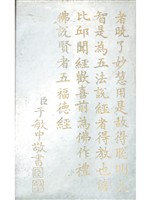 者曉了妙慧用是故得聰明大
智是為五法說經者得教也諸
比邱聞經歡喜前為佛作禮
佛說賢者五福德經
臣于敏中敬書